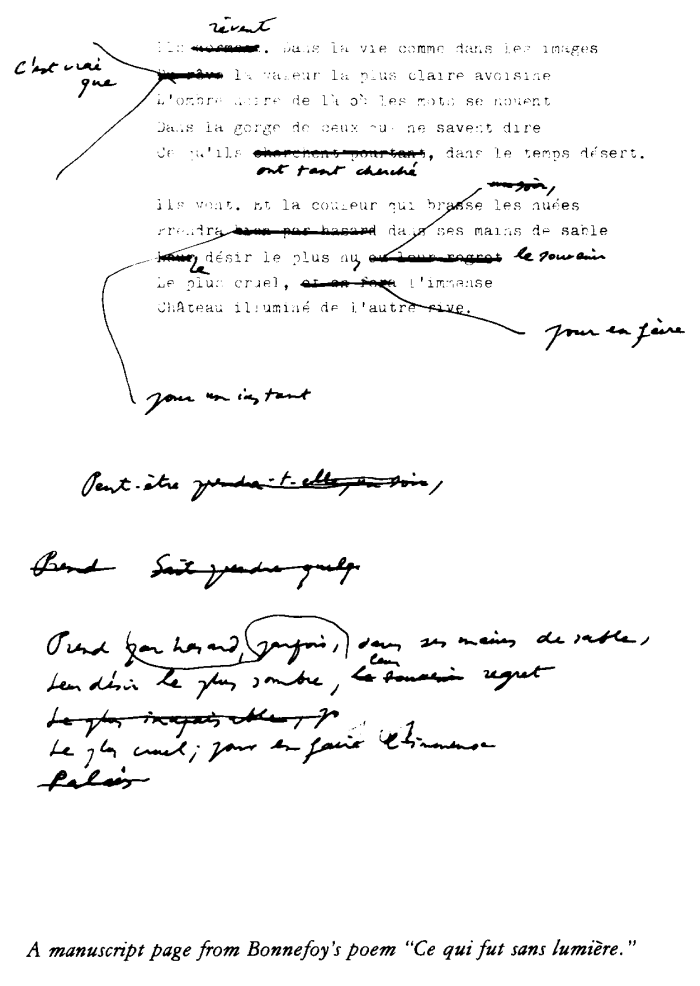 rêvent
Ils dorment. Dans la vie comme dans les images
C'est vrai
que
Du rêve la valeur la plus claire avoisine
L'ombre noire de là où les mots se nouent
Dans la gorge de ceux qui ne savent dire
Ce qu'ils cherchent pourtant, dans le temps désert.
ont tant cherché
un soir,
Ils vont. Et la couleur qui brasse les nuées
Prendra bien par hasard dans ses mains de sable
Leur désir le plus nu, ou leur regret le souvenir
Le
Le plus cruel, et en fera l'immense
Château illuminé de l'autre rive.
pour en faire
pour un instant
Peut-être prendra-t-elle, un soir,
Prend Sait prendre quelqu
Prend par hasard, parfois, dans ses mains de sable,
leur
Leur désir le plus sombre, le souvenir regret
Le plus inapaisable, p
Le plus cruel; pour en faire l'immense
Palais
A manuscript page from Bonnefoy's poem "Ce qui fut sans lumière."